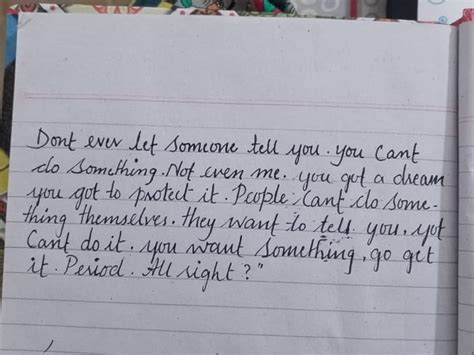 Dont ever let someone tell you. you cant
do something. Not even me. you got a dream
you got to protect it. People cant do some-
thing themselves. they want to tell you, yot
Cant do it. you want something, go get
it. Period. All right?"